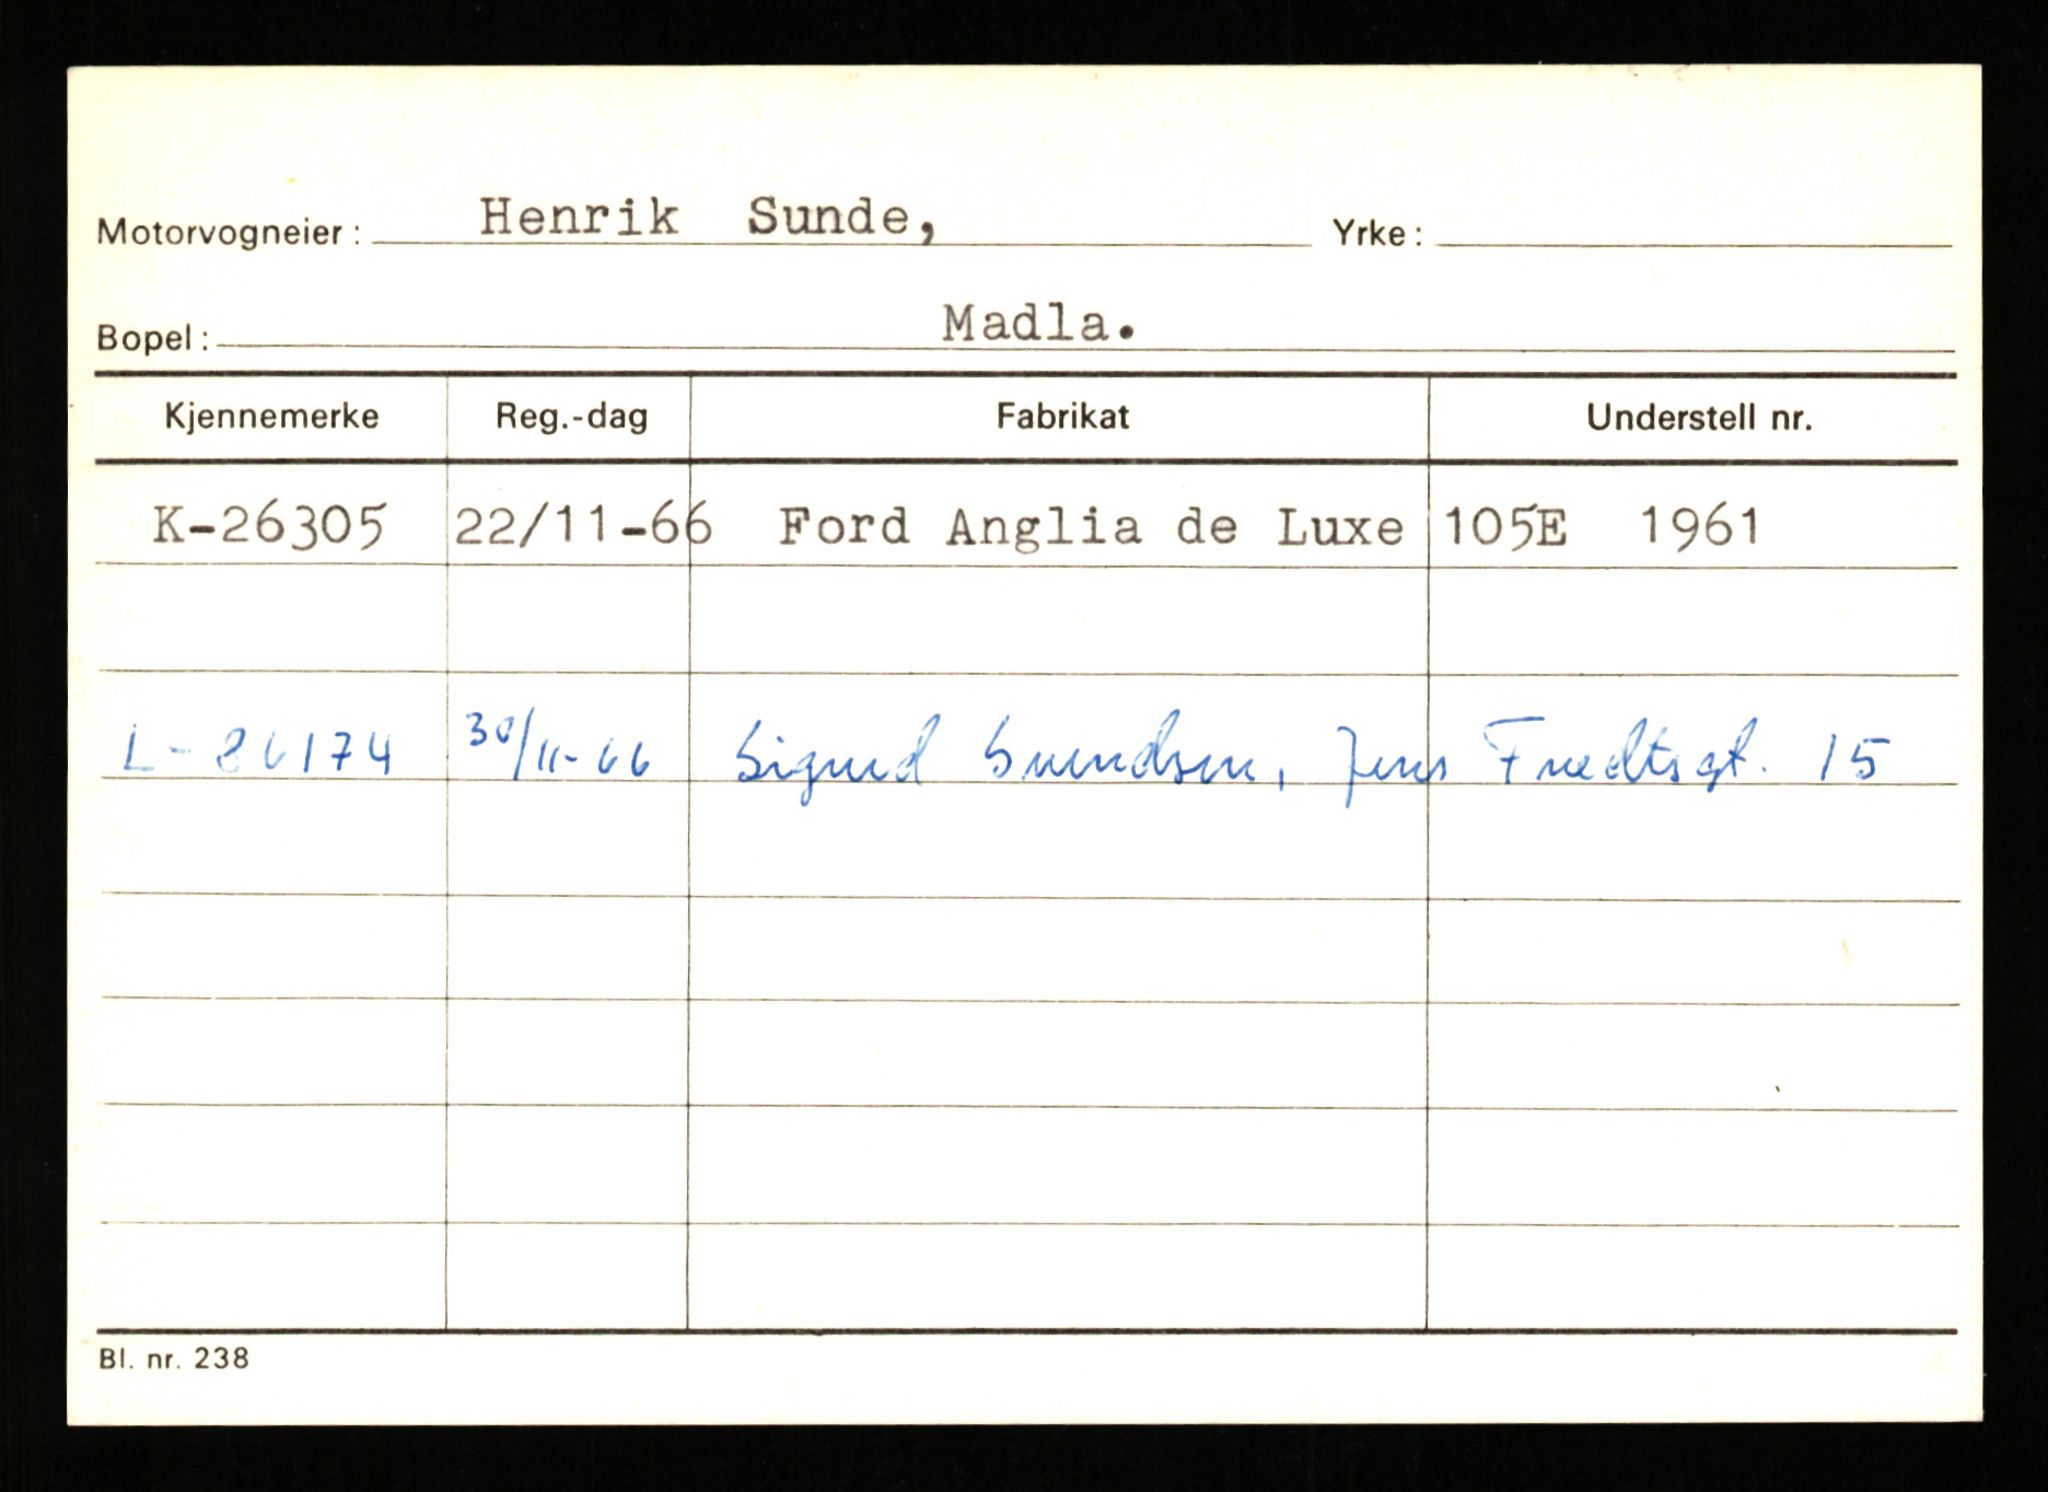 Motorvogneier: Henrik Sunde, Yrke:
Bopel: Madla.
Kjennemerke Reg.-dag Fabrikat Understell nr.
K-26305 22/11-66 Ford Anglia de Luxe 105E 1961
L-86174 30/11-66 Sigurd Svendsen, Jens 15
Bl. nr. 238